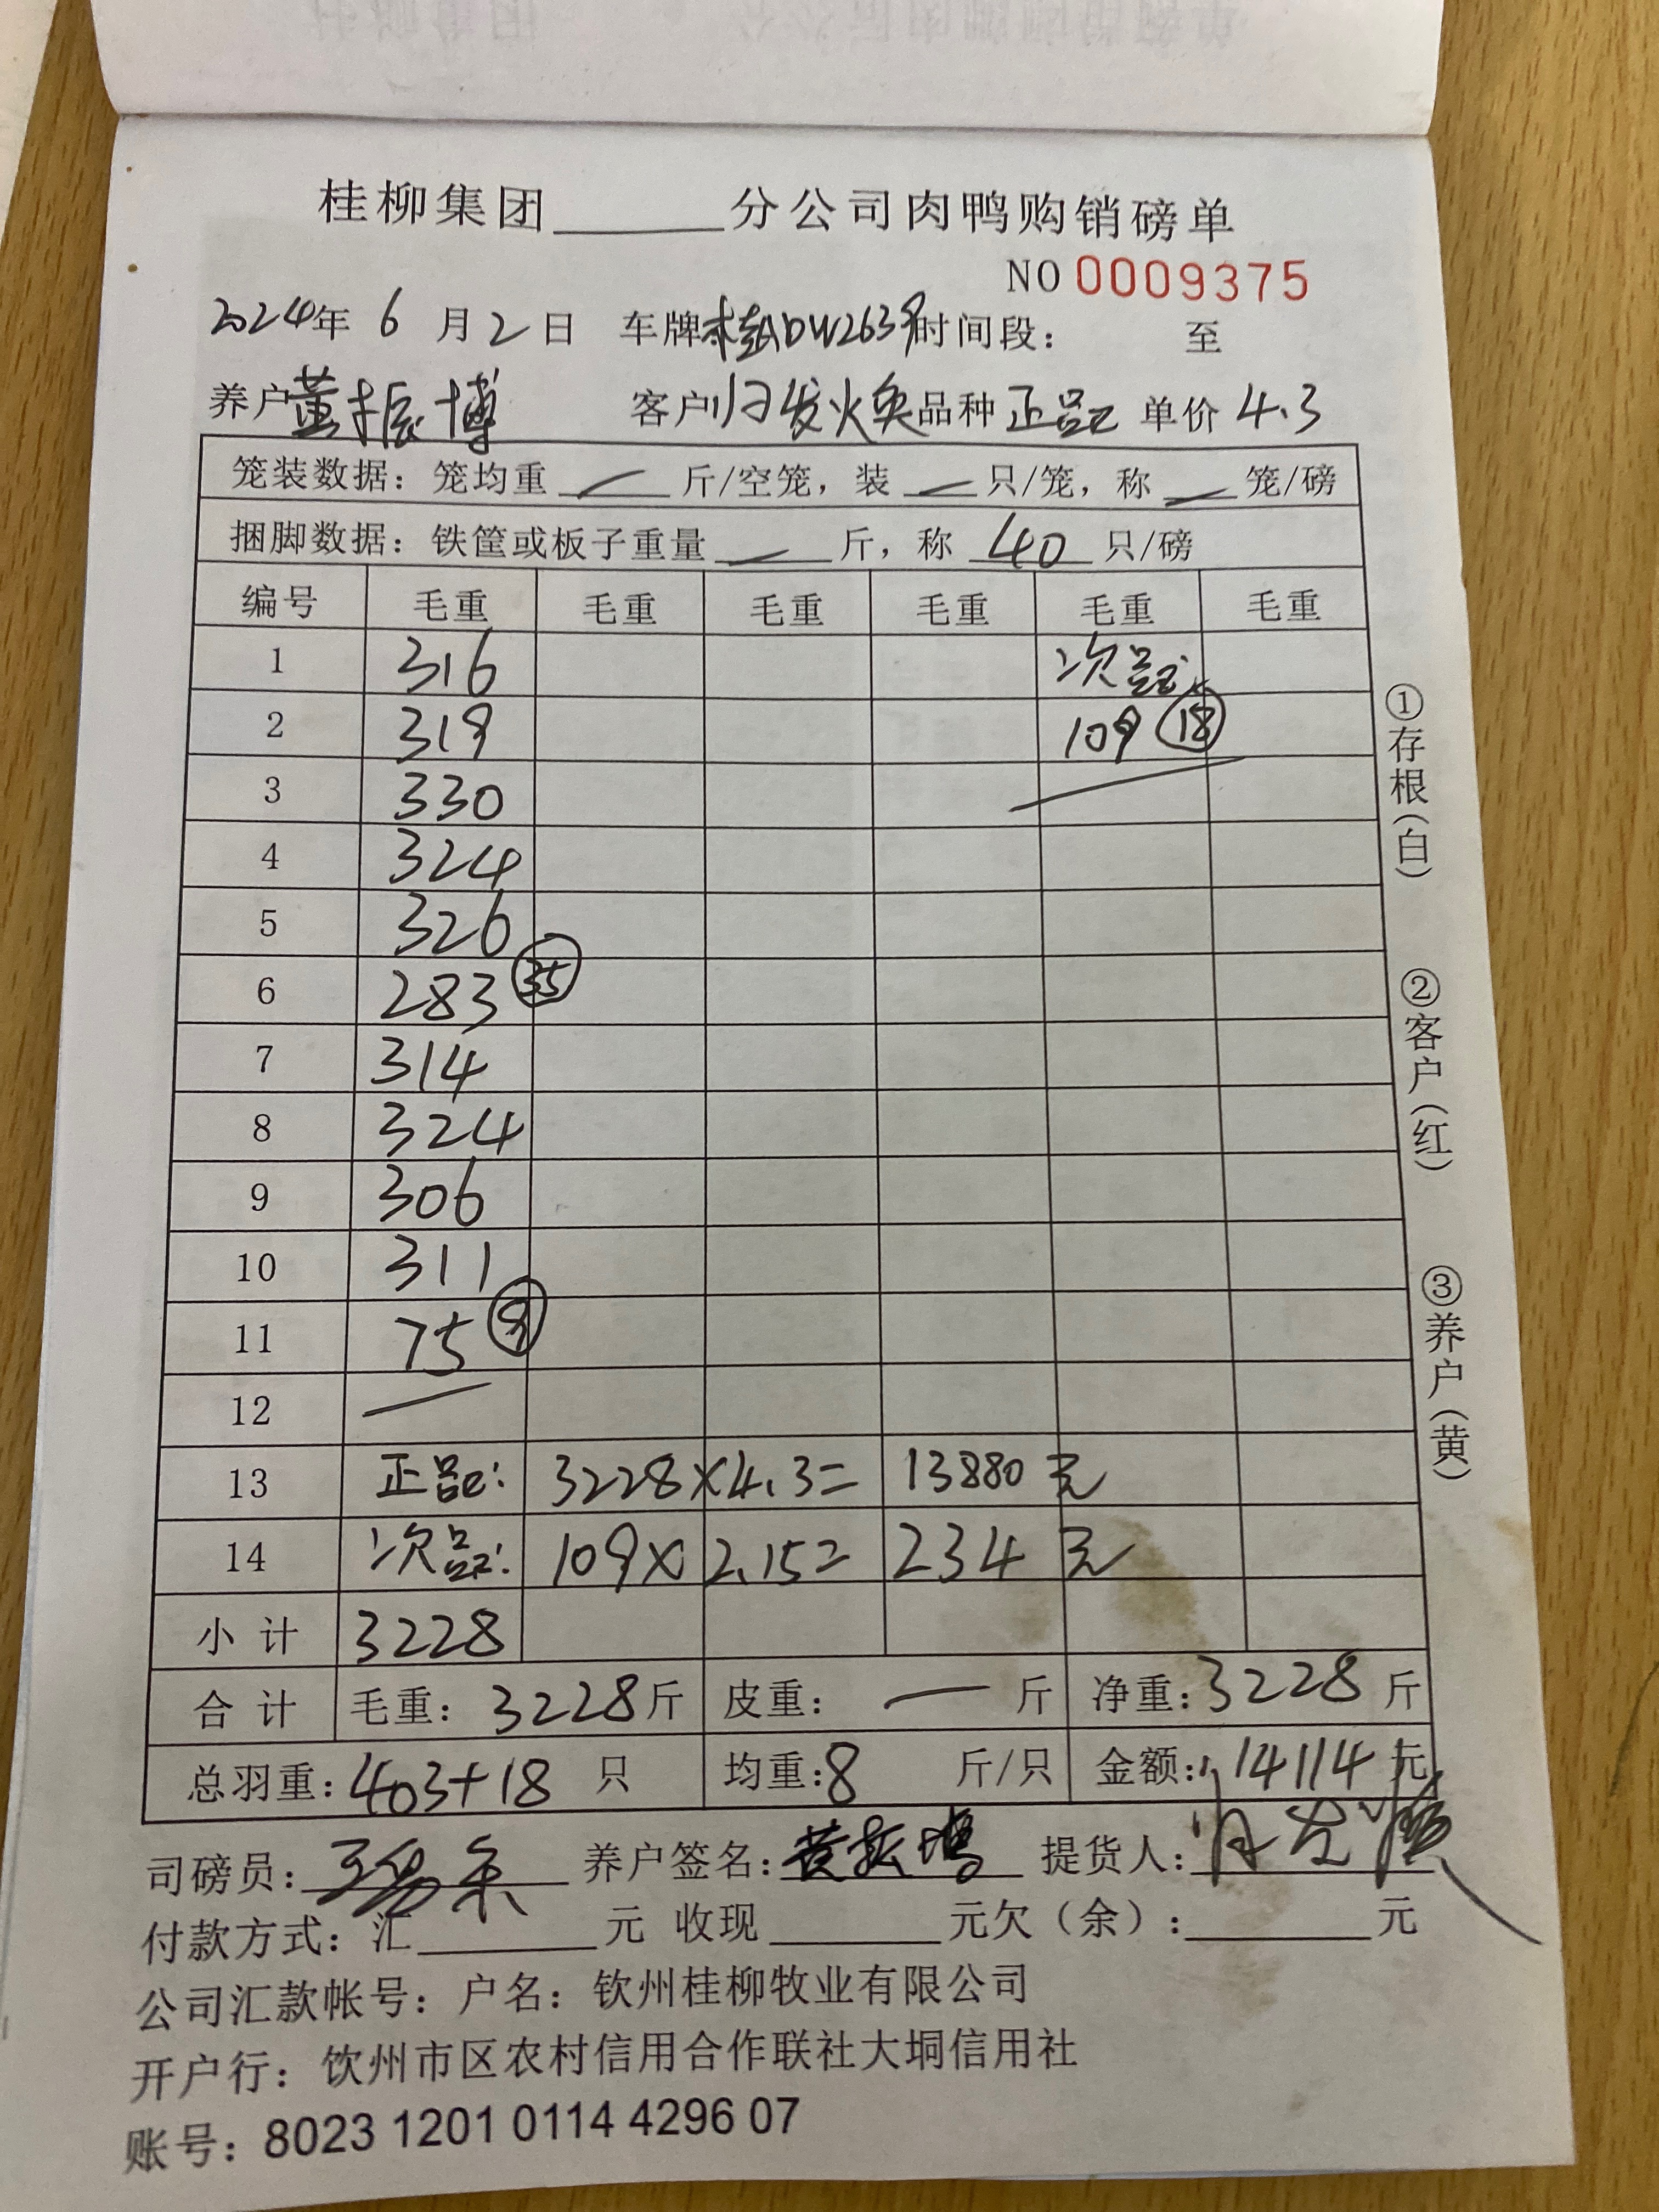 桂柳集团______分公司肉鸭购销磅单
NO 0009375
2024年 6 月 2 日 车牌桂ADW2639时间段： 至
养户董振博 客户归发焕品种 正品 单价 4.3
笼装数据：笼均重 — 斤/空笼，装 — 只/笼，称 — 笼/磅
捆脚数据：铁筐或板子重量 — 斤，称 40 只/磅
编号 毛重 毛重 毛重 毛重 毛重 毛重
1 316 次品:
2 319 109 18
3 330
4 324
5 326
6 283 35
7 314
8 324
9 306
10 311
11 75
12
13 正品: 3228×4.3= 13880 元
14 次品: 109× 2.15= 234 元
小 计 3228
合 计 毛重：3228斤 皮重：— 斤 净重：3228 斤
总羽重：403+18 只 均重：8 斤/只 金额：14114 元
司磅员： 养户签名： 提货人：
付款方式：汇______元 收现______元欠（余）：______元
公司汇款帐号：户名：钦州桂柳牧业有限公司
开户行：钦州市区农村信用合作联社大垌信用社
账号：8023 1201 0114 4296 07
①存根（白）
②客户（红）
③养户（黄）